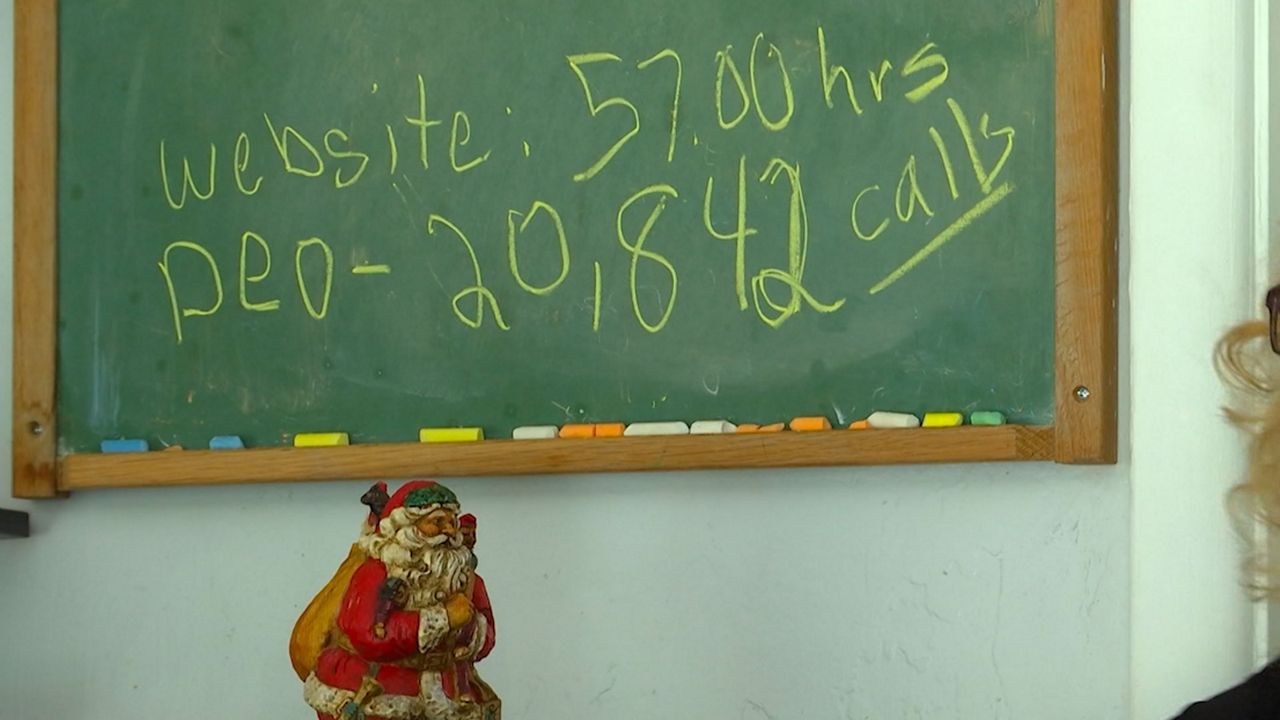 website: 57.00 hrs
DEO - 20,842 calls